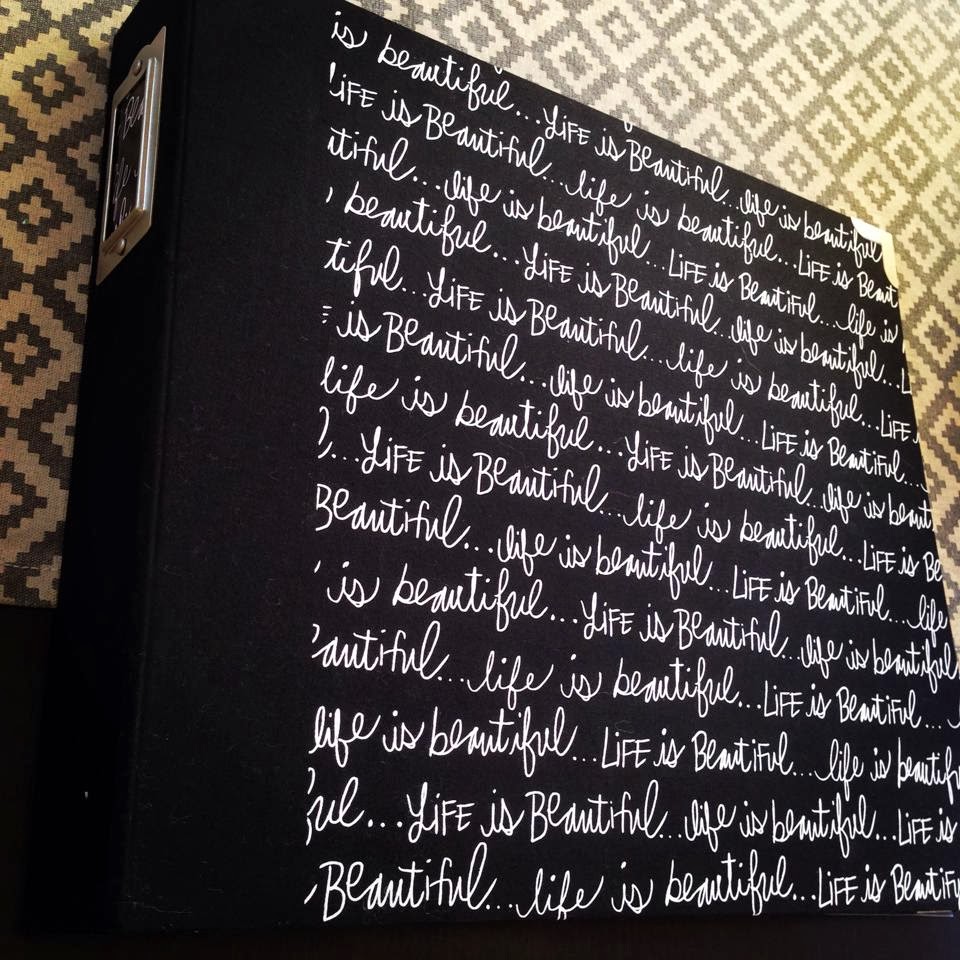 is beautiful...LiFE is Beautiful...life is beautiful
LiFE is Beautiful...life is beautiful...LiFE is Beaut
utiful...life is beautiful...LiFE is Beautiful...life is
beautiful...LiFE is Beautiful...life is beautiful...L
tiful...LiFE is Beautiful...life is beautiful...LiFE
E is Beautiful...life is beautiful...LiFE is Beautiful...
life is beautiful...LiFE is Beautiful...life is beaut
...LiFE is Beautiful...life is beautiful...LiFE is Be
Beautiful...life is beautiful...LiFE is Beautiful...life
is beautiful...LiFE is Beautiful...life is beautiful
autiful...life is beautiful...LiFE is Beautiful...
life is beautiful...LiFE is Beautiful...life is beautif
ul...LiFE is Beautiful...life is beautiful...LiFE is
Beautiful...life is beautiful...LiFE is Beautifu